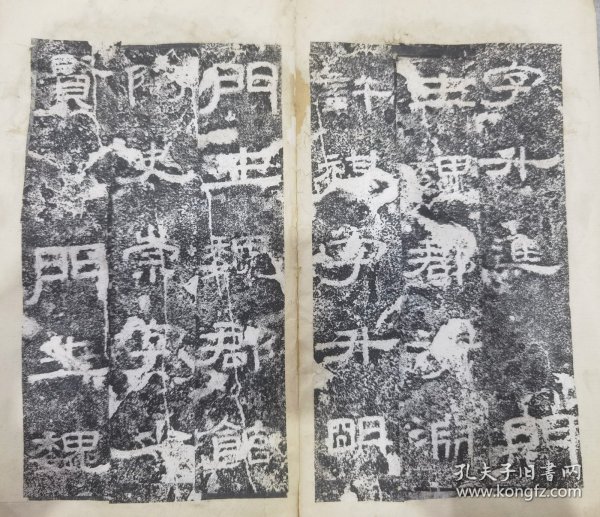 字升進門
生魏郡清淵
許祺字升明
門生魏郡館
陶史崇字少
賢門生魏
孔夫子旧书网
www.kongfz.com